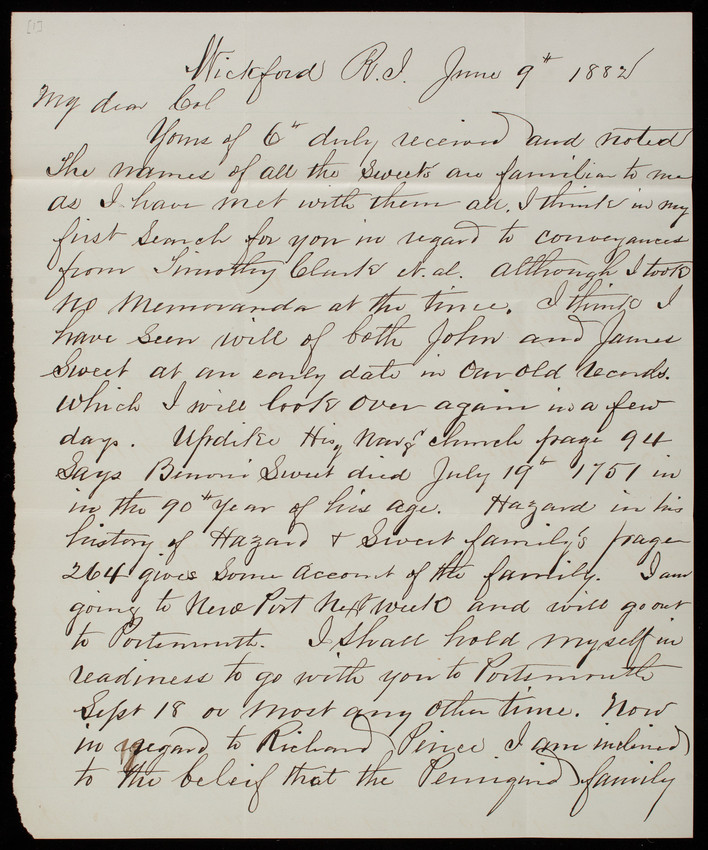 [1]
Wickford R.I. June 9th 1882
My dear Col
Yours of 6th duly received and noted
The names of all the Sweets are familiar to me
as I have met with them all. I think in my
first Search for you in regard to conveyances
from Timothy Clark et. al. although I took
no memoranda at the time. I think I
have seen will of both John and James
Sweet at an early date in our old records.
which I will look over again in a few
days. Updike Hisy Narrgt church page 94
Says Benoni Sweet died July 19th 1751 in
in the 90th year of his age. Hazard in his
history of Hazard & Sweet family's page
264 gives Some account of the family. I am
going to New Port Next week and will go out
to Portsmouth. I Shall hold myself in
readiness to go with you to Portsmouth
Sept 18 or most any other time. Now
in regard to Richard Pince I am inclined
to the beleif that the family